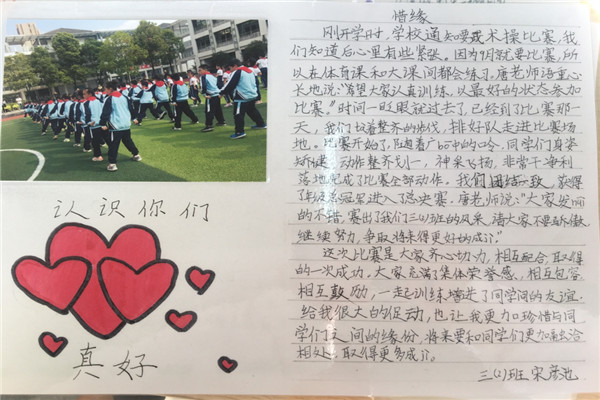 惜缘
刚开学时,学校通知要武术操比赛,我
们知道后心里有些紧张。因为1月就要比赛,所
以在体育课和大课间都会练习。唐老师语重心
长地说:"希望大家认真训练,以最好的状态参加
比赛。"时间一眨眼就过去了,已经到了比赛那一
天,我们排着整齐的步伐,排好队走进比赛场
地。比赛开始了,随着广播中的口令,同学们身姿
矫健,动作整齐划一,神采飞扬,非常干净利
落地完成了比赛全部动作。我们团结一致,获得
了年级总冠军进入了总决赛。唐老师说:"大家发挥
的不错,赛出了我们三(2)班的风采,请大家不要骄傲,
继续努力,争取将来得更好的成績。"
这次比赛是大家齐心协力,相互配合,取得
的一次成功。大家充满了集体荣誉感,相互包容,
相互鼓励,一起训练增进了同学间的友谊
给我很大的触动,也让我更加珍惜与同
学们之间的缘份,将来要和同学们更加融洽
相处,取得更多成绩。
三(2)班 宋彦池
认识你们
真好